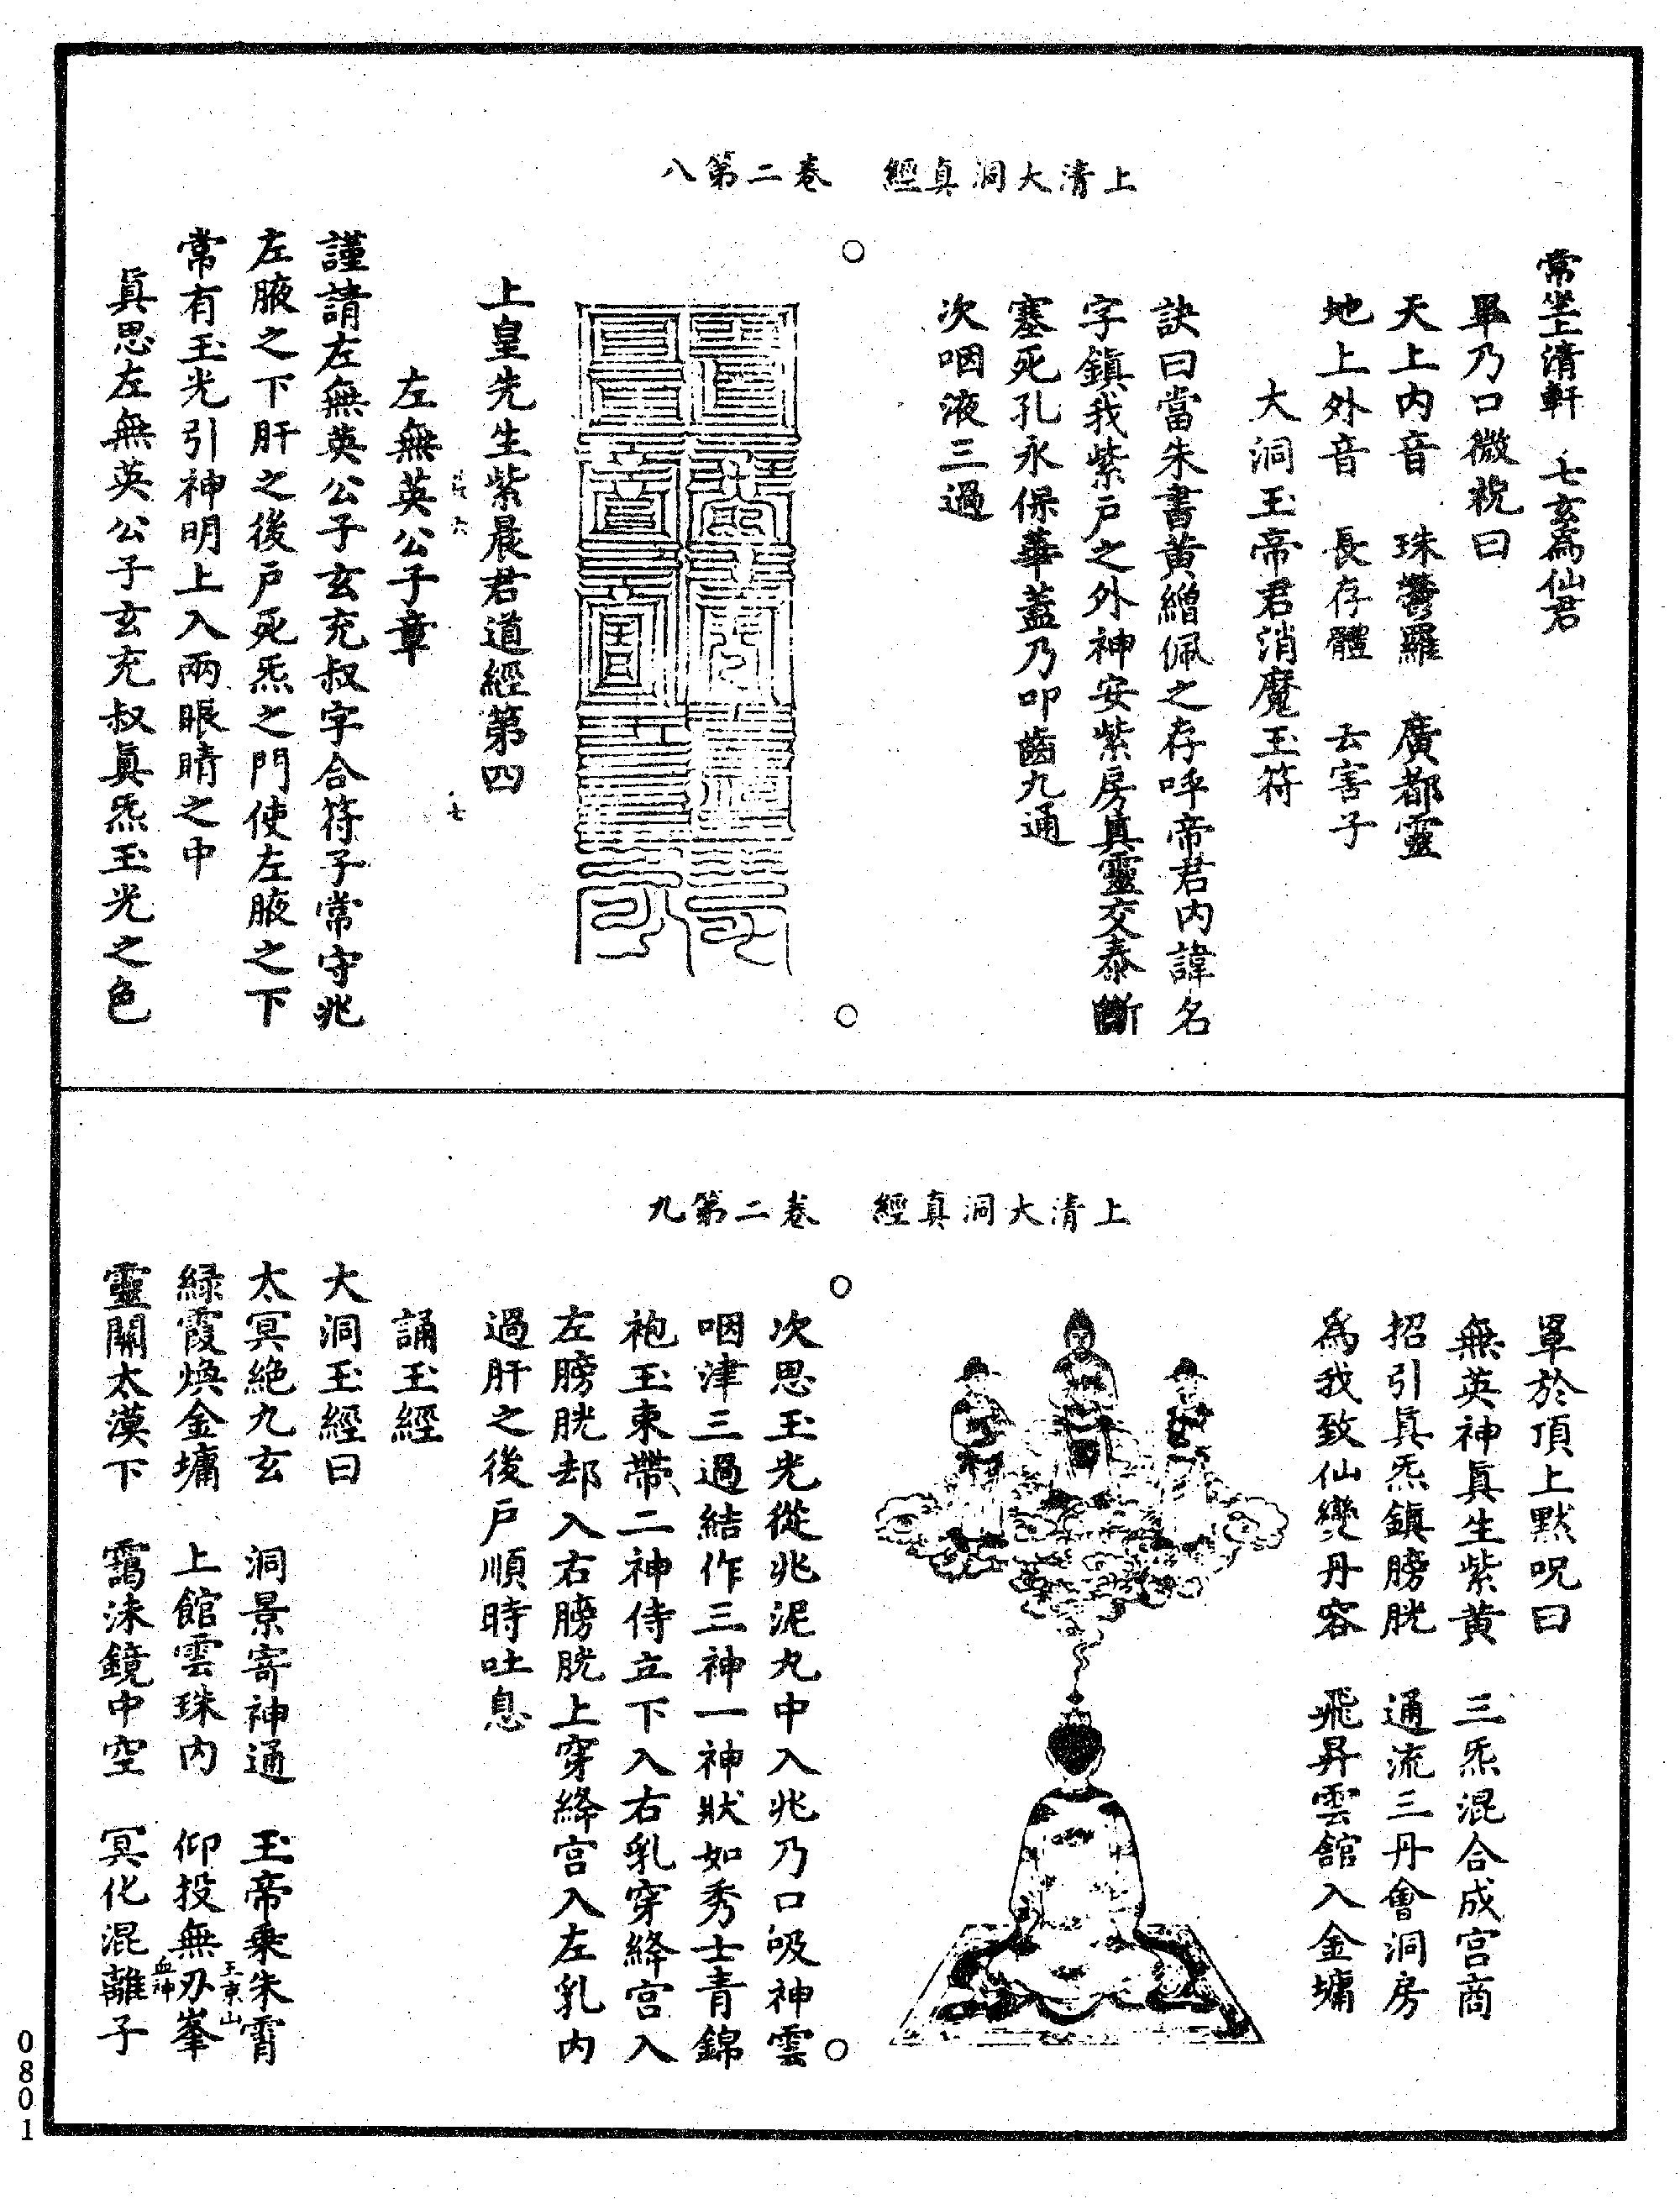 上清大洞真經　卷二第八
常坐上清軒　七玄為仙君
畢乃口微祝曰
天上內音　珠鬱羅　廣都靈
地上外音　長存體　去害子
大洞玉帝君消魔玉符
訣曰當朱書黃繒佩之存呼帝君內諱名
字鎮我紫戶之外神安紫房真靈交泰斷
塞死孔永保華蓋乃叩齒九通
次咽液三過
上皇先生紫晨君道經第四
七
左無英公子章
謹請左無英公子玄充叔字合符子常守兆
左腋之下肝之後戶死炁之門使左腋之下
常有玉光引神明上入兩眼睛之中
眞思左無英公子玄充叔眞炁玉光之色
上清大洞真經　卷二第九
罩於頂上默呪曰
無英神眞生紫黃　三炁混合成宮商
招引眞炁鎮膀胱　通流三丹會洞房
為我致仙變丹容　飛昇雲館入金墉
次思玉光從兆泥丸中入兆乃口吸神雲
咽津三過結作三神一神狀如秀士青錦
袍玉束帶二神侍立下入右乳穿絳宮入
左膀胱却入右膀胱上穿絳宮入左乳內
過肝之後戶順時吐息
誦玉經
大洞玉經曰
太冥絕九玄　洞景寄神通　玉帝乗朱霄玉京山
綠霞煥金墉　上館雲珠內　仰投無刃峯血神
靈關太漠下　靄沬鏡中空　冥化混離子
0801